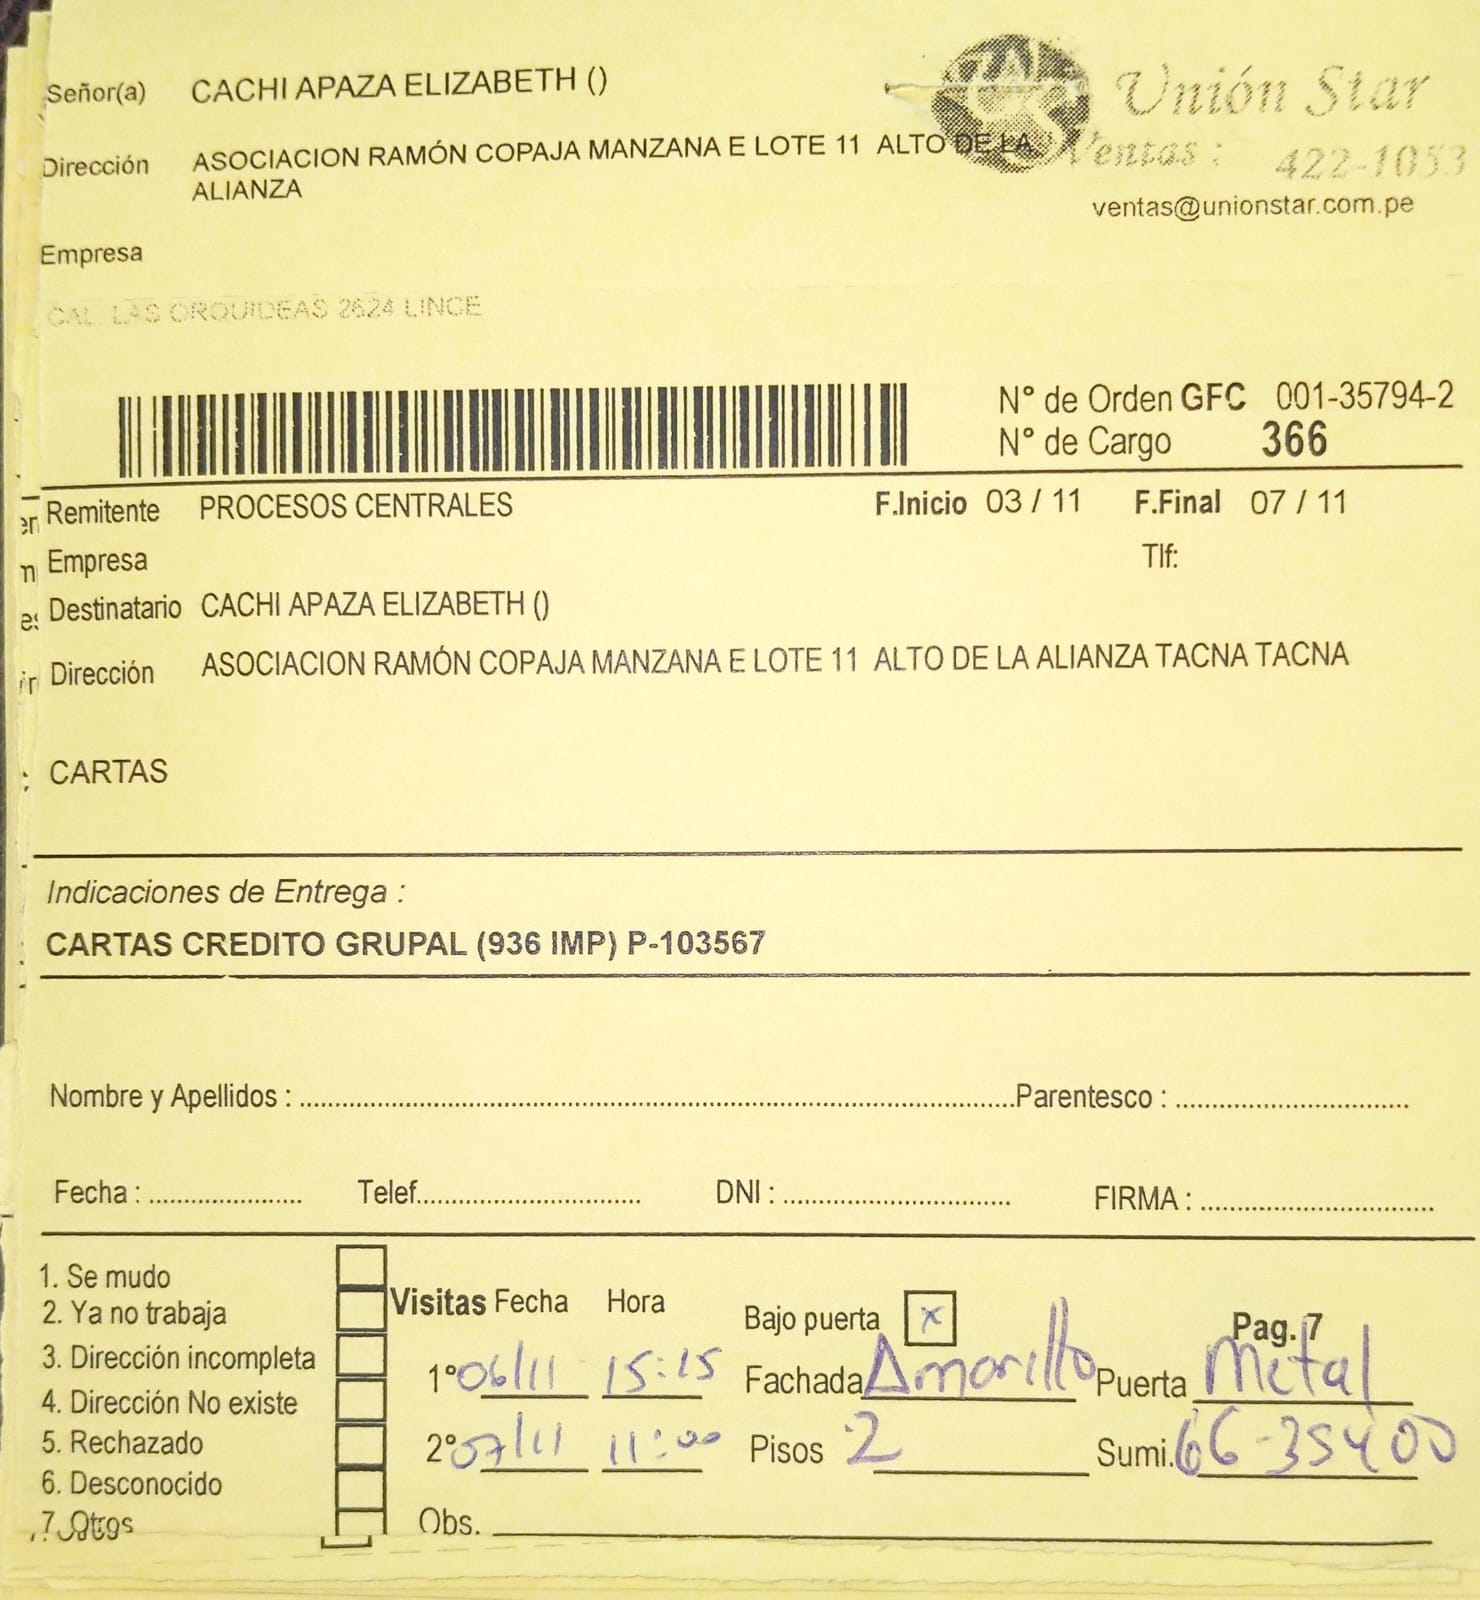 Señor(a) CACHI APAZA ELIZABETH ()
Unión Star
Dirección ASOCIACION RAMÓN COPAJA MANZANA E LOTE 11 ALTO DE LA
ALIANZA
Ventas : 422-1053
ventas@unionstar.com.pe
Empresa
CAL. LAS ORQUIDEAS 2624 LINCE
N° de Orden GFC 001-35794-2
N° de Cargo 366
Remitente PROCESOS CENTRALES F.Inicio 03 / 11 F.Final 07 / 11
Empresa Tlf:
Destinatario CACHI APAZA ELIZABETH ()
Dirección ASOCIACION RAMÓN COPAJA MANZANA E LOTE 11 ALTO DE LA ALIANZA TACNA TACNA
CARTAS
Indicaciones de Entrega :
CARTAS CREDITO GRUPAL (936 IMP) P-103567
Nombre y Apellidos : Parentesco :
Fecha : Telef. DNI : FIRMA :
1. Se mudo
2. Ya no trabaja
3. Dirección incompleta
4. Dirección No existe
5. Rechazado
6. Desconocido
7. Otros
Visitas Fecha Hora
1° 06/11 15:15
2° 07/11 11:00
Bajo puerta x Pag. 7
Fachada Amarillo Puerta Metal
Pisos 2 Sumi. 66-35400
Obs.